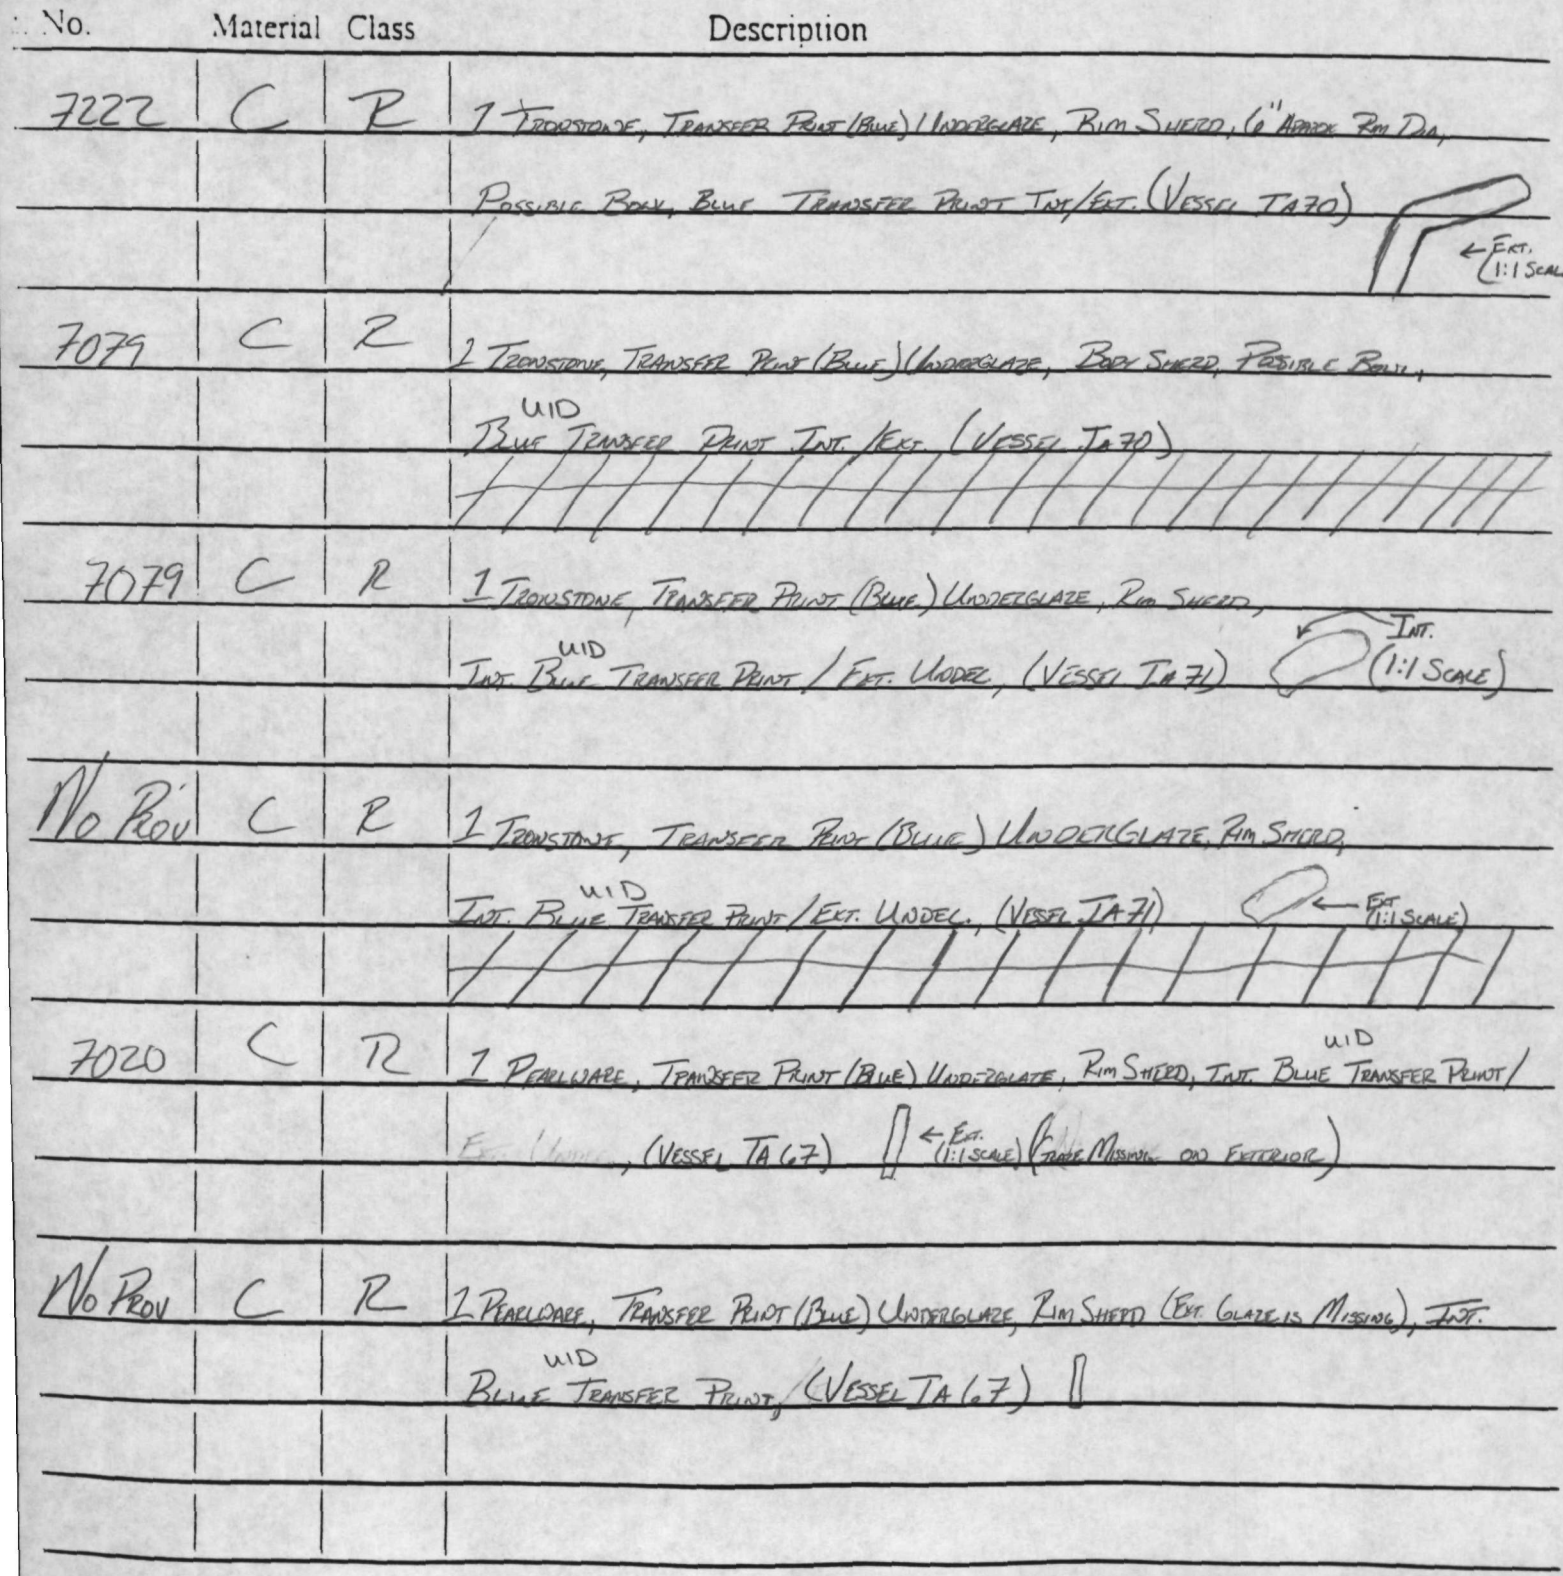 No. Material Class Description
7222 C R 1 Ironstone, Transfer Print (Blue) Underglaze, Rim Sherd, 6" Approx Rim Dia,
Possible Bowl, Blue Transfer Print Int/Ext. (Vessel IA70)
← Ext.
(1:1 Scal
7079 C R 1 Ironstone, Transfer Print (Blue) Underglaze, Body Sherd, Possible Bowl,
UID
Blue Transfer Print Int./Ext. (Vessel IA70)
7079 C R 1 Ironstone, Transfer Print (Blue) Underglaze, Rim Sherd,
Int.
UID
Int. Blue Transfer Print / Ext. Undec, (Vessel IA71) (1:1 Scale)
No Prov C R 1 Ironstone, Transfer Print (Blue) Underglaze, Rim Sherd,
UID
Int. Blue Transfer Print / Ext. Undec., (Vessel IA71) ← Ext
(1:1 Scale)
UID
7020 C R 1 Pearlware, Transfer Print (Blue) Underglaze, Rim Sherd, Int. Blue Transfer Print /
, (Vessel IA67) ← Ext. (1:1 Scale) (Glaze Missing on Exterior)
No Prov C R 1 Pearlware, Transfer Print (Blue) Underglaze, Rim Sherd (Ext. Glaze is Missing), Int.
UID
Blue Transfer Print, (Vessel IA67)